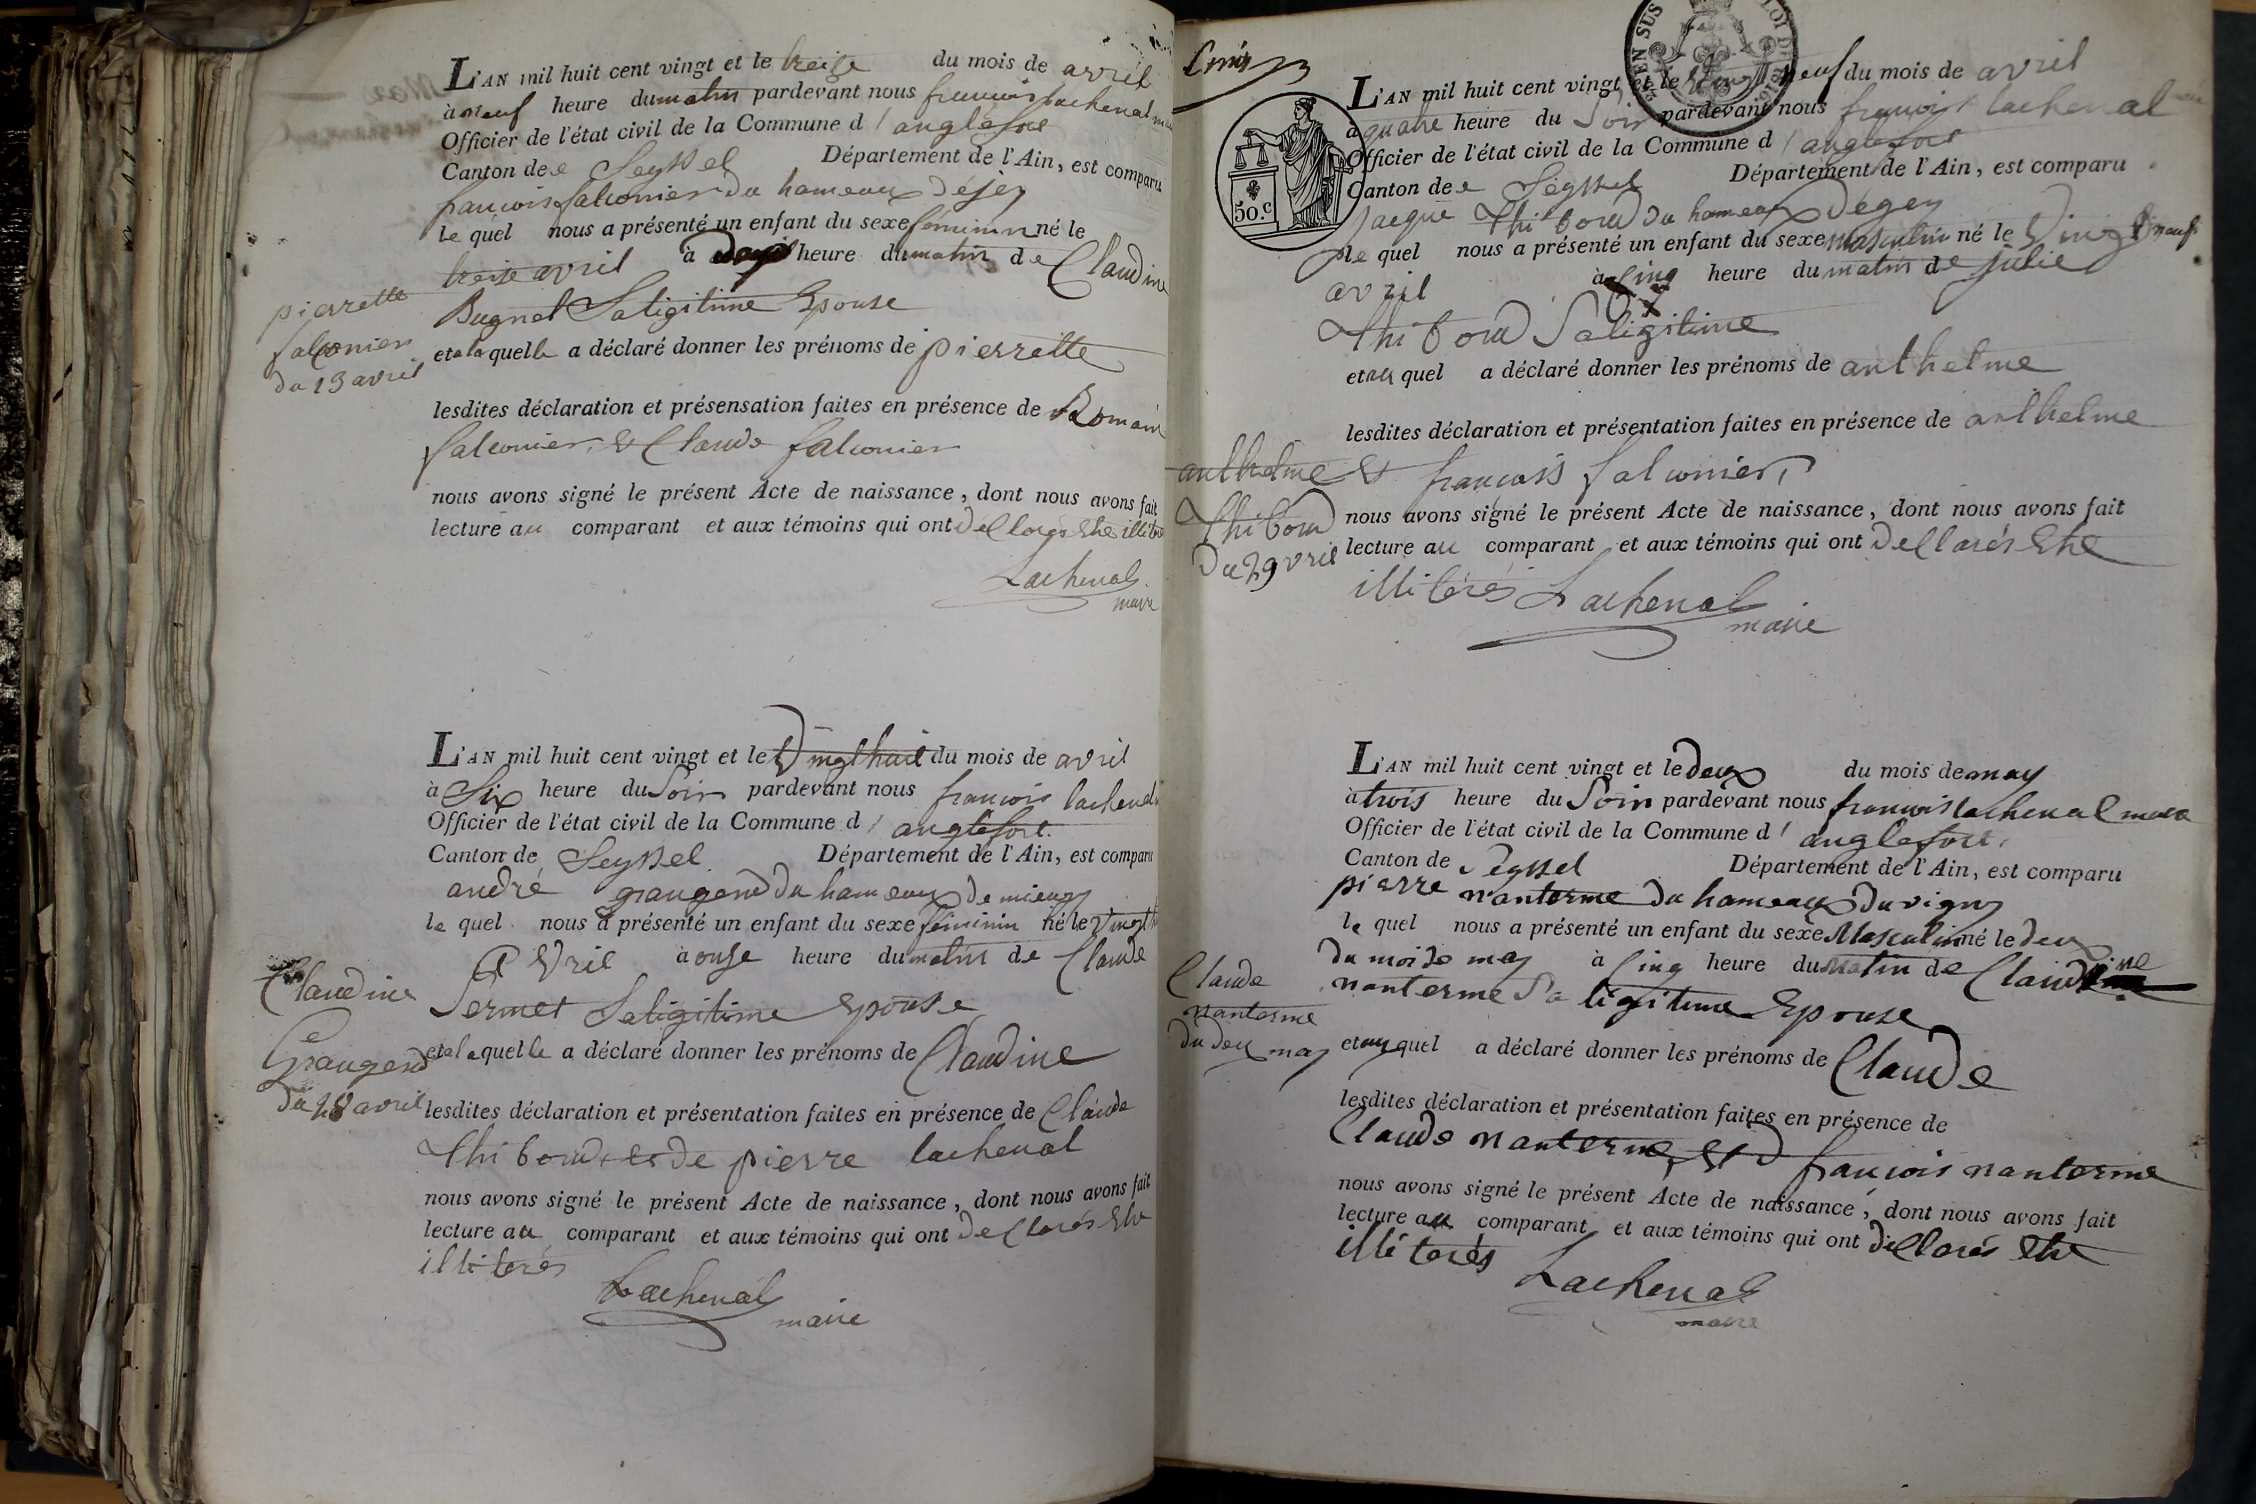 L'AN mil huit cent vingt et le treize du mois de avril
à neuf heure du matin pardevant nous francois lachenal
Officier de l'état civil de la Commune d' anglefort
Canton de Seyssel Département de l'Ain, est comparu
francois falconier du hameaux déjey
le quel nous a présenté un enfant du sexe féminin né le
treize avril à heure du matin de Claudine
Bugnet Saligitime Epouse
et a la quelle a déclaré donner les prénoms de pierrette
lesdites déclaration et présensation faites en présence de Romain
falconier, & Claude falconier
nous avons signé le présent Acte de naissance, dont nous avons fait
lecture au comparant et aux témoins qui ont déClarés Etre
Lachenal
maire
pierrette
falconier
du 13 avril
L'AN mil huit cent vingt et le Vingthuit du mois de avril
à Six heure du Soir pardevant nous francois lachenal
Officier de l'état civil de la Commune d' anglefort.
Canton de Seyssel Département de l'Ain, est comparu
andré grangend du hameaux de mieux
le quel nous a présenté un enfant du sexe féminin né le
AVril à onse heure du matin de Claude
Sermet Saligitime Epouse
et a la quelle a déclaré donner les prénoms de Claudine
lesdites déclaration et présentation faites en présence de Claude
Thiboud et de pierre lachenal
nous avons signé le présent Acte de naissance, dont nous avons fait
lecture au comparant et aux témoins qui ont deClarés Etre
illiterés
Lachenal
maire
Claudine
Grangend
du 28 avril
50.C
L'AN mil huit cent vingt et le neuf du mois de avril
a quatre heure du Soir pardevant nous francois lachenal
Officier de l'état civil de la Commune d' anglefort
Canton de Séyssel Département de l'Ain, est comparu
Jacque Thiboud du hameaux Dégey
le quel nous a présenté un enfant du sexe masculin né le Vingt neuf
avril à Cinq heure du matin de julie
Thiboud Saligitime
et au quel a déclaré donner les prénoms de anthelme
lesdites déclaration et présentation faites en présence de anthelme
& francois falconier,
nous avons signé le présent Acte de naissance, dont nous avons fait
lecture au comparant et aux témoins qui ont deClarés Etre
illiterés Lachenal
maire
anthelme
Thiboud
du 29 vril
L'AN mil huit cent vingt et le deux du mois de may
à trois heure du Soir pardevant nous francois lachenal maire
Officier de l'état civil de la Commune d' anglefort.
Canton de Séyssel Département de l'Ain, est comparu
pierre nanterme du hameaux du vigny
le quel nous a présenté un enfant du sexe Masculin né le deux
du moi de may à Cinq heure du Matin de Claudine
nanterme Sa ligitime Epouse
et au quel a déclaré donner les prénoms de Claude
lesdites déclaration et présentation faites en présence de
Claude nanterme, & francois nanterme
nous avons signé le présent Acte de naissance, dont nous avons fait
lecture au comparant et aux témoins qui ont déClarés Etre
illiterés
Lachenal
maire
Claude
nanterme
du deux may